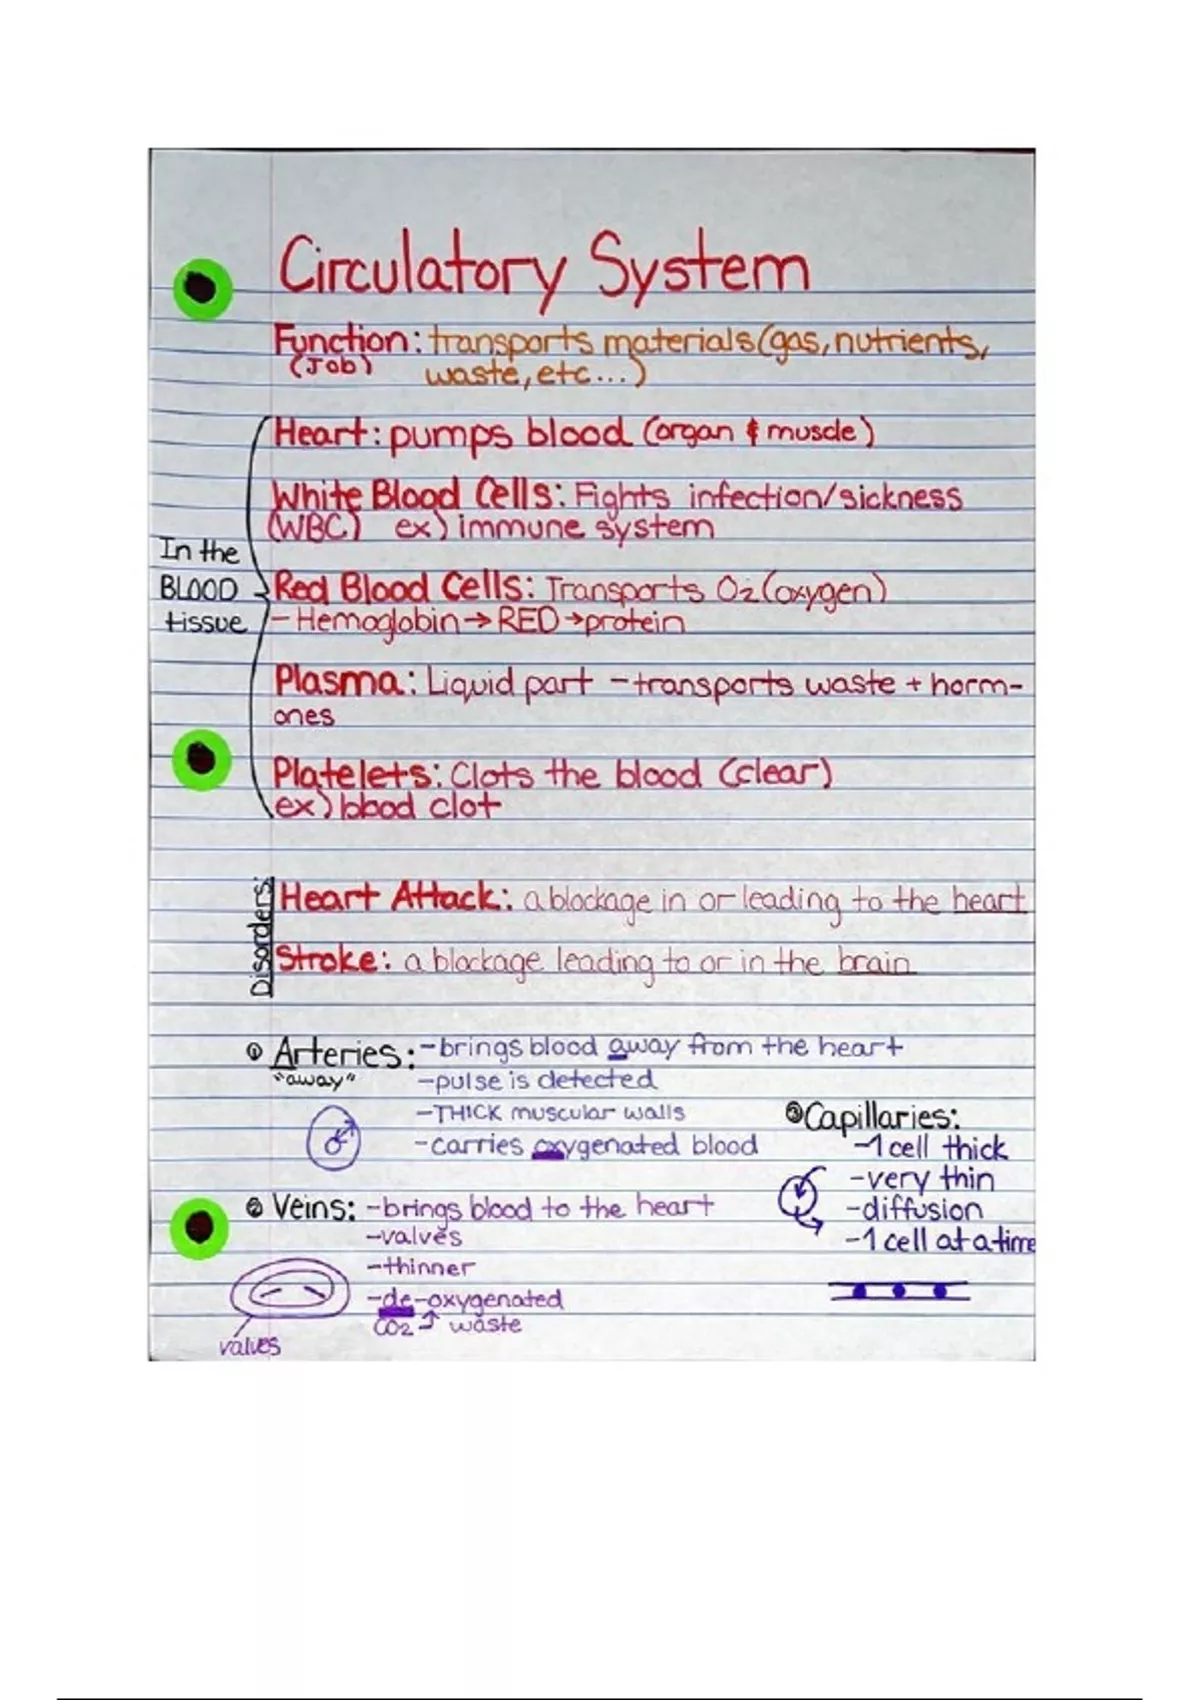 Circulatory System
Function: transports materials (gas, nutrients,
(Job) waste, etc...)
Heart: pumps blood (organ & muscle)
White Blood Cells: Fights infection/sickness
(WBC) ex) immune system
In the
BLOOD
tissue
Red Blood Cells: Transports O2 (oxygen)
- Hemoglobin → RED → protein
Plasma: Liquid part - transports waste + horm-
ones
Platelets: Clots the blood (clear)
ex) blood clot
Disorders:
Heart Attack: a blockage in or leading to the heart
Stroke: a blockage leading to or in the brain
① Arteries: - brings blood away from the heart
"away" - pulse is detected
- THICK muscular walls
- carries oxygenated blood
② Veins: - brings blood to the heart
- valves
- thinner
- de-oxygenated
CO2 ↑ waste
valves
③ Capillaries:
- 1 cell thick
- very thin
- diffusion
- 1 cell at a time